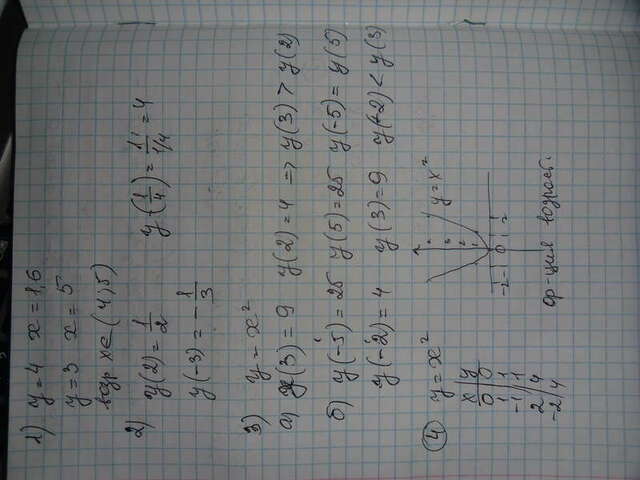 1) y = 4 x = 1,6
y = 3 x = 5
возр x ∈ (4; 5)
2) y(2) = 1/2 y(1/4) = 1/1/4 = 4
y(-3) = -1/3
3) y = x²
а) y(3) = 9 y(2) = 4 => y(3) > y(2)
б) y(-5) = 25 y(5) = 25 y(-5) = y(5)
y(-2) = 4 y(3) = 9 y(-2) < y(3)
4 y = x² y = x²
x y
0 0
1 1
-1 1
2 4
-2 4
4
3
2
1
-2 -1 0 1 2
ф-ция возраст.